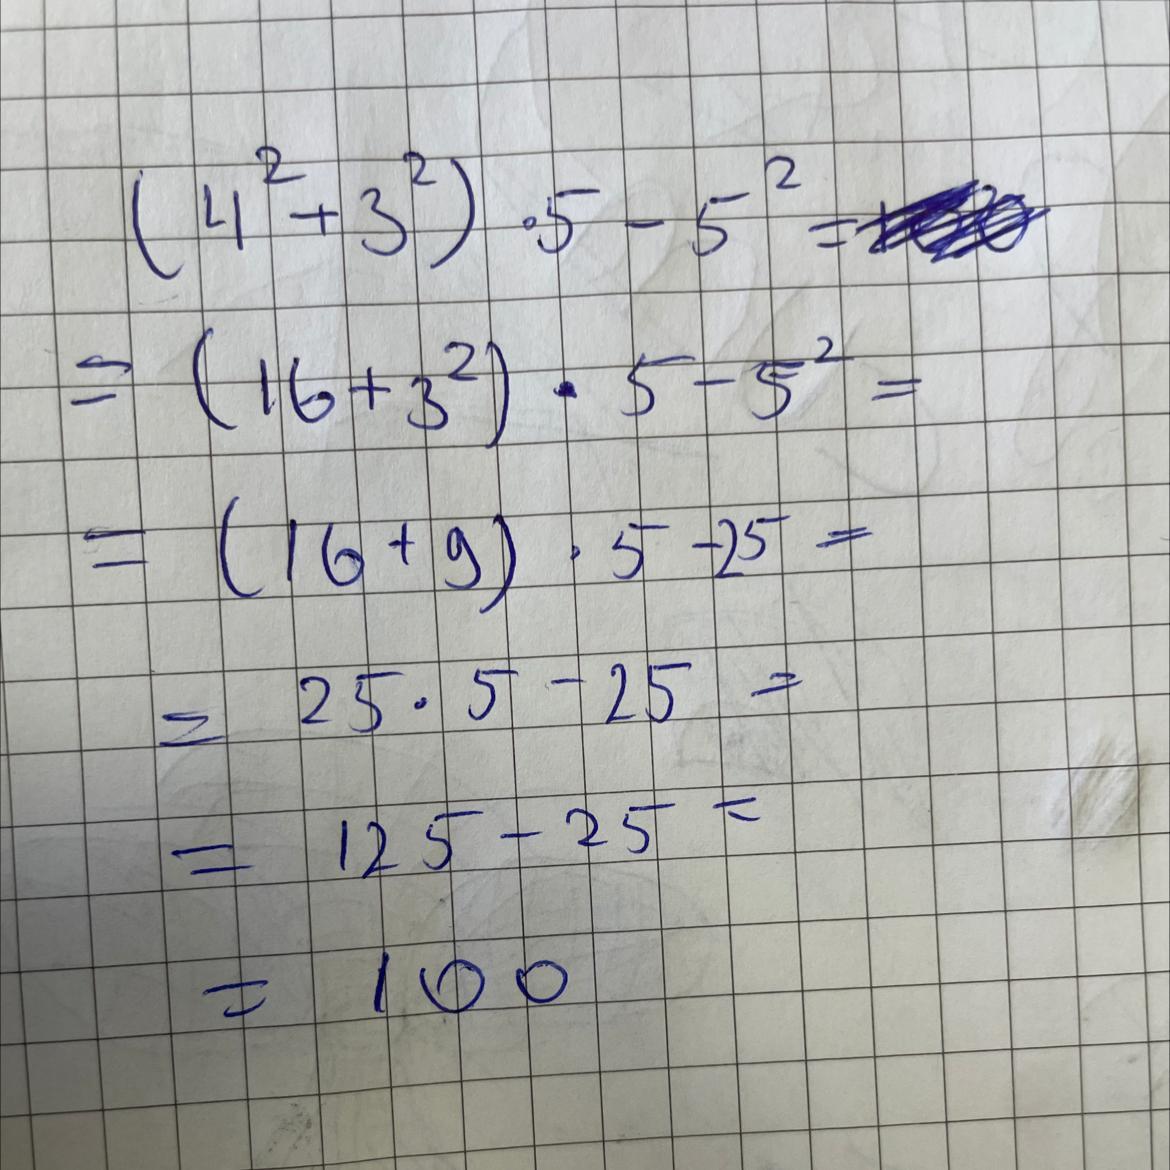 (4² + 3²) · 5 - 5² =
= (16 + 3²) · 5 - 5² =
= (16 + 9) · 5 - 25 =
= 25 · 5 - 25 =
= 125 - 25 =
= 100